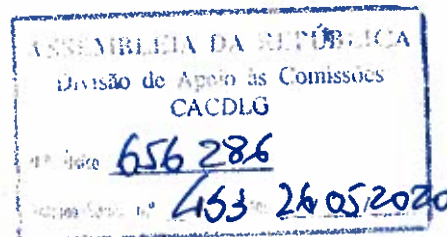 ASSEMBLEIA DA REPÚBLICA
Divisão de Apoio às Comissões
CACDLG
656 286
nº 453 26 05 2020